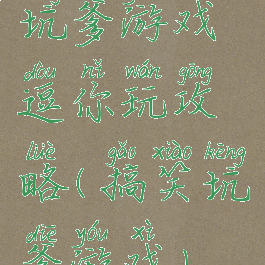 坑爹游戏
dòu nǐ wán gōng
逗你玩攻
lüè gǎo xiào kēng
略(搞笑坑
diē yóu xì
爹游戏)